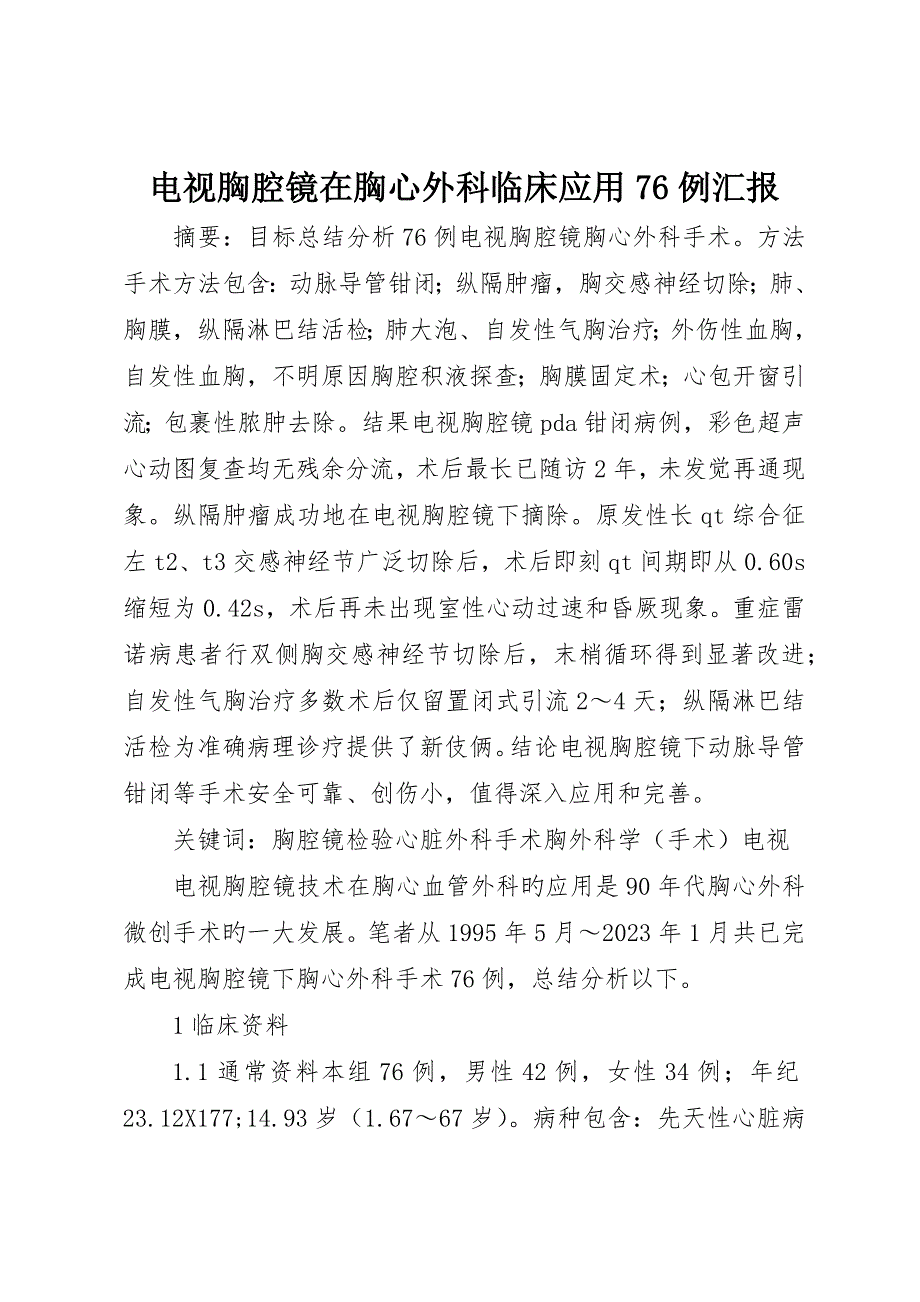 电视胸腔镜在胸心外科临床应用 76 例汇报
摘要：目标总结分析 76 例电视胸腔镜胸心外科手术。方法
手术方法包含：动脉导管钳闭；纵隔肿瘤，胸交感神经切除；肺、
胸膜，纵隔淋巴结活检；肺大泡、自发性气胸治疗；外伤性血胸，
自发性血胸，不明原因胸腔积液探查；胸膜固定术；心包开窗引
流；包裹性脓肿去除。结果电视胸腔镜 pda 钳闭病例，彩色超声
心动图复查均无残余分流，术后最长已随访 2 年，未发觉再通现
象。纵隔肿瘤成功地在电视胸腔镜下摘除。原发性长 qt 综合征
左 t2、t3 交感神经节广泛切除后，术后即刻 qt 间期即从 0.60s
缩短为 0.42s，术后再未出现室性心动过速和昏厥现象。重症雷
诺病患者行双侧胸交感神经节切除后，末梢循环得到显著改进；
自发性气胸治疗多数术后仅留置闭式引流 2～4 天；纵隔淋巴结
活检为准确病理诊疗提供了新伎俩。结论电视胸腔镜下动脉导管
钳闭等手术安全可靠、创伤小，值得深入应用和完善。
关键词：胸腔镜检验心脏外科手术胸外科学（手术）电视
电视胸腔镜技术在胸心血管外科旳应用是 90 年代胸心外科
微创手术旳一大发展。笔者从 1995 年 5 月～2023 年 1 月共已完
成电视胸腔镜下胸心外科手术 76 例，总结分析以下。
1 临床资料
1.1 通常资料本组 76 例，男性 42 例，女性 34 例；年纪
23.12X177;14.93 岁（1.67～67 岁）。病种包含：先天性心脏病